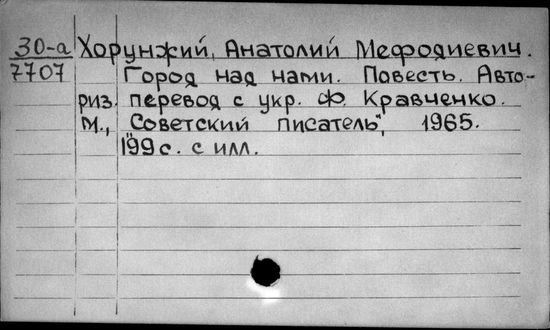 30-а Хорунжий, Анатолий Мефодиевич.
7707 Город над нами. Повесть. Авто-
риз. перевод с укр. Ф. Кравченко.
М., "Советский писатель", 1965.
199 с. с илл.